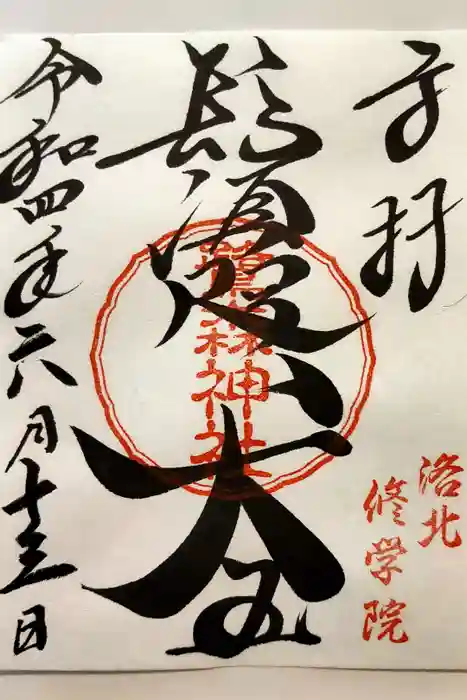 奉拝
洛北
修学院
鬚咫天王
鷺森神社
令和四年六月十三日